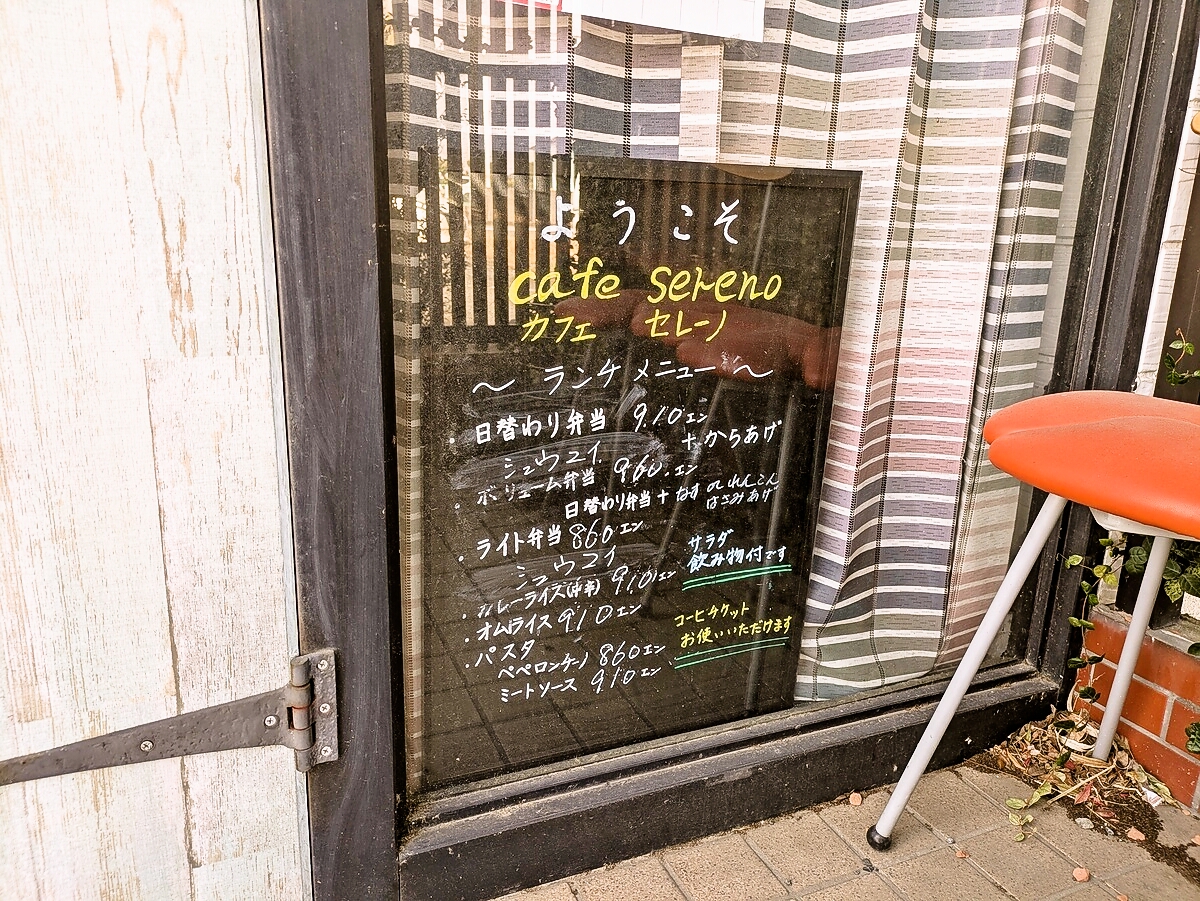 ようこそ
cafe sereno
カフェ セレーノ
～ ランチメニュー ～
・日替わり弁当 910エン
シュウマイ +からあげ
・ボリューム弁当 960エン
日替わり弁当+なす or れんこん
はさみあげ
・ライト弁当 860エン
シュウマイ
・カレーライス(中辛) 910エン
・オムライス 910エン
・パスタ
ペペロンチーノ 860エン
ミートソース 910エン
サラダ
飲み物付です
コーヒーチケット
お使いいただけます